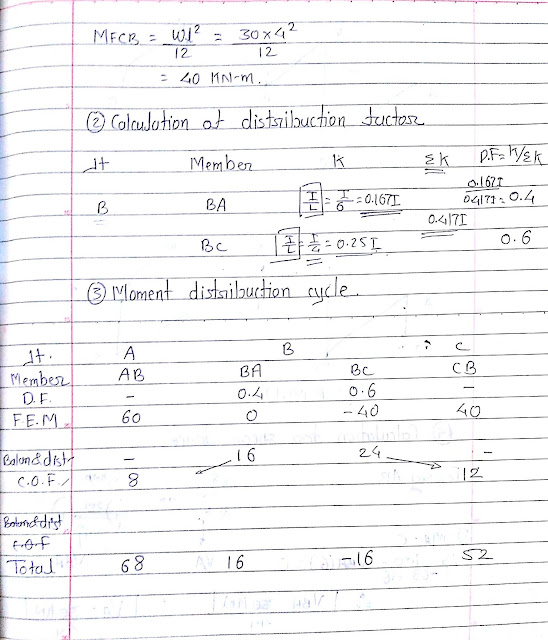 MFCB = Wl² / 12 = 30×4² / 12
= 40 KN-m.
② Calculation of distribution factor
Jt Member K ΣK D.F = K/ΣK
B BA I/L = I/6 = 0.167I 0.417I 0.167I / 0.417I = 0.4
BC I/L = I/4 = 0.25I 0.6
③ Moment distribuction cycle.
Jt. A B C
Member AB BA BC CB
D.F. - 0.4 0.6 -
F.E.M 60 0 -40 40
Balanc & dist - 16 24 -
C.O.F. 8 12
Balanc & dist
C.O.F
Total 68 16 -16 52